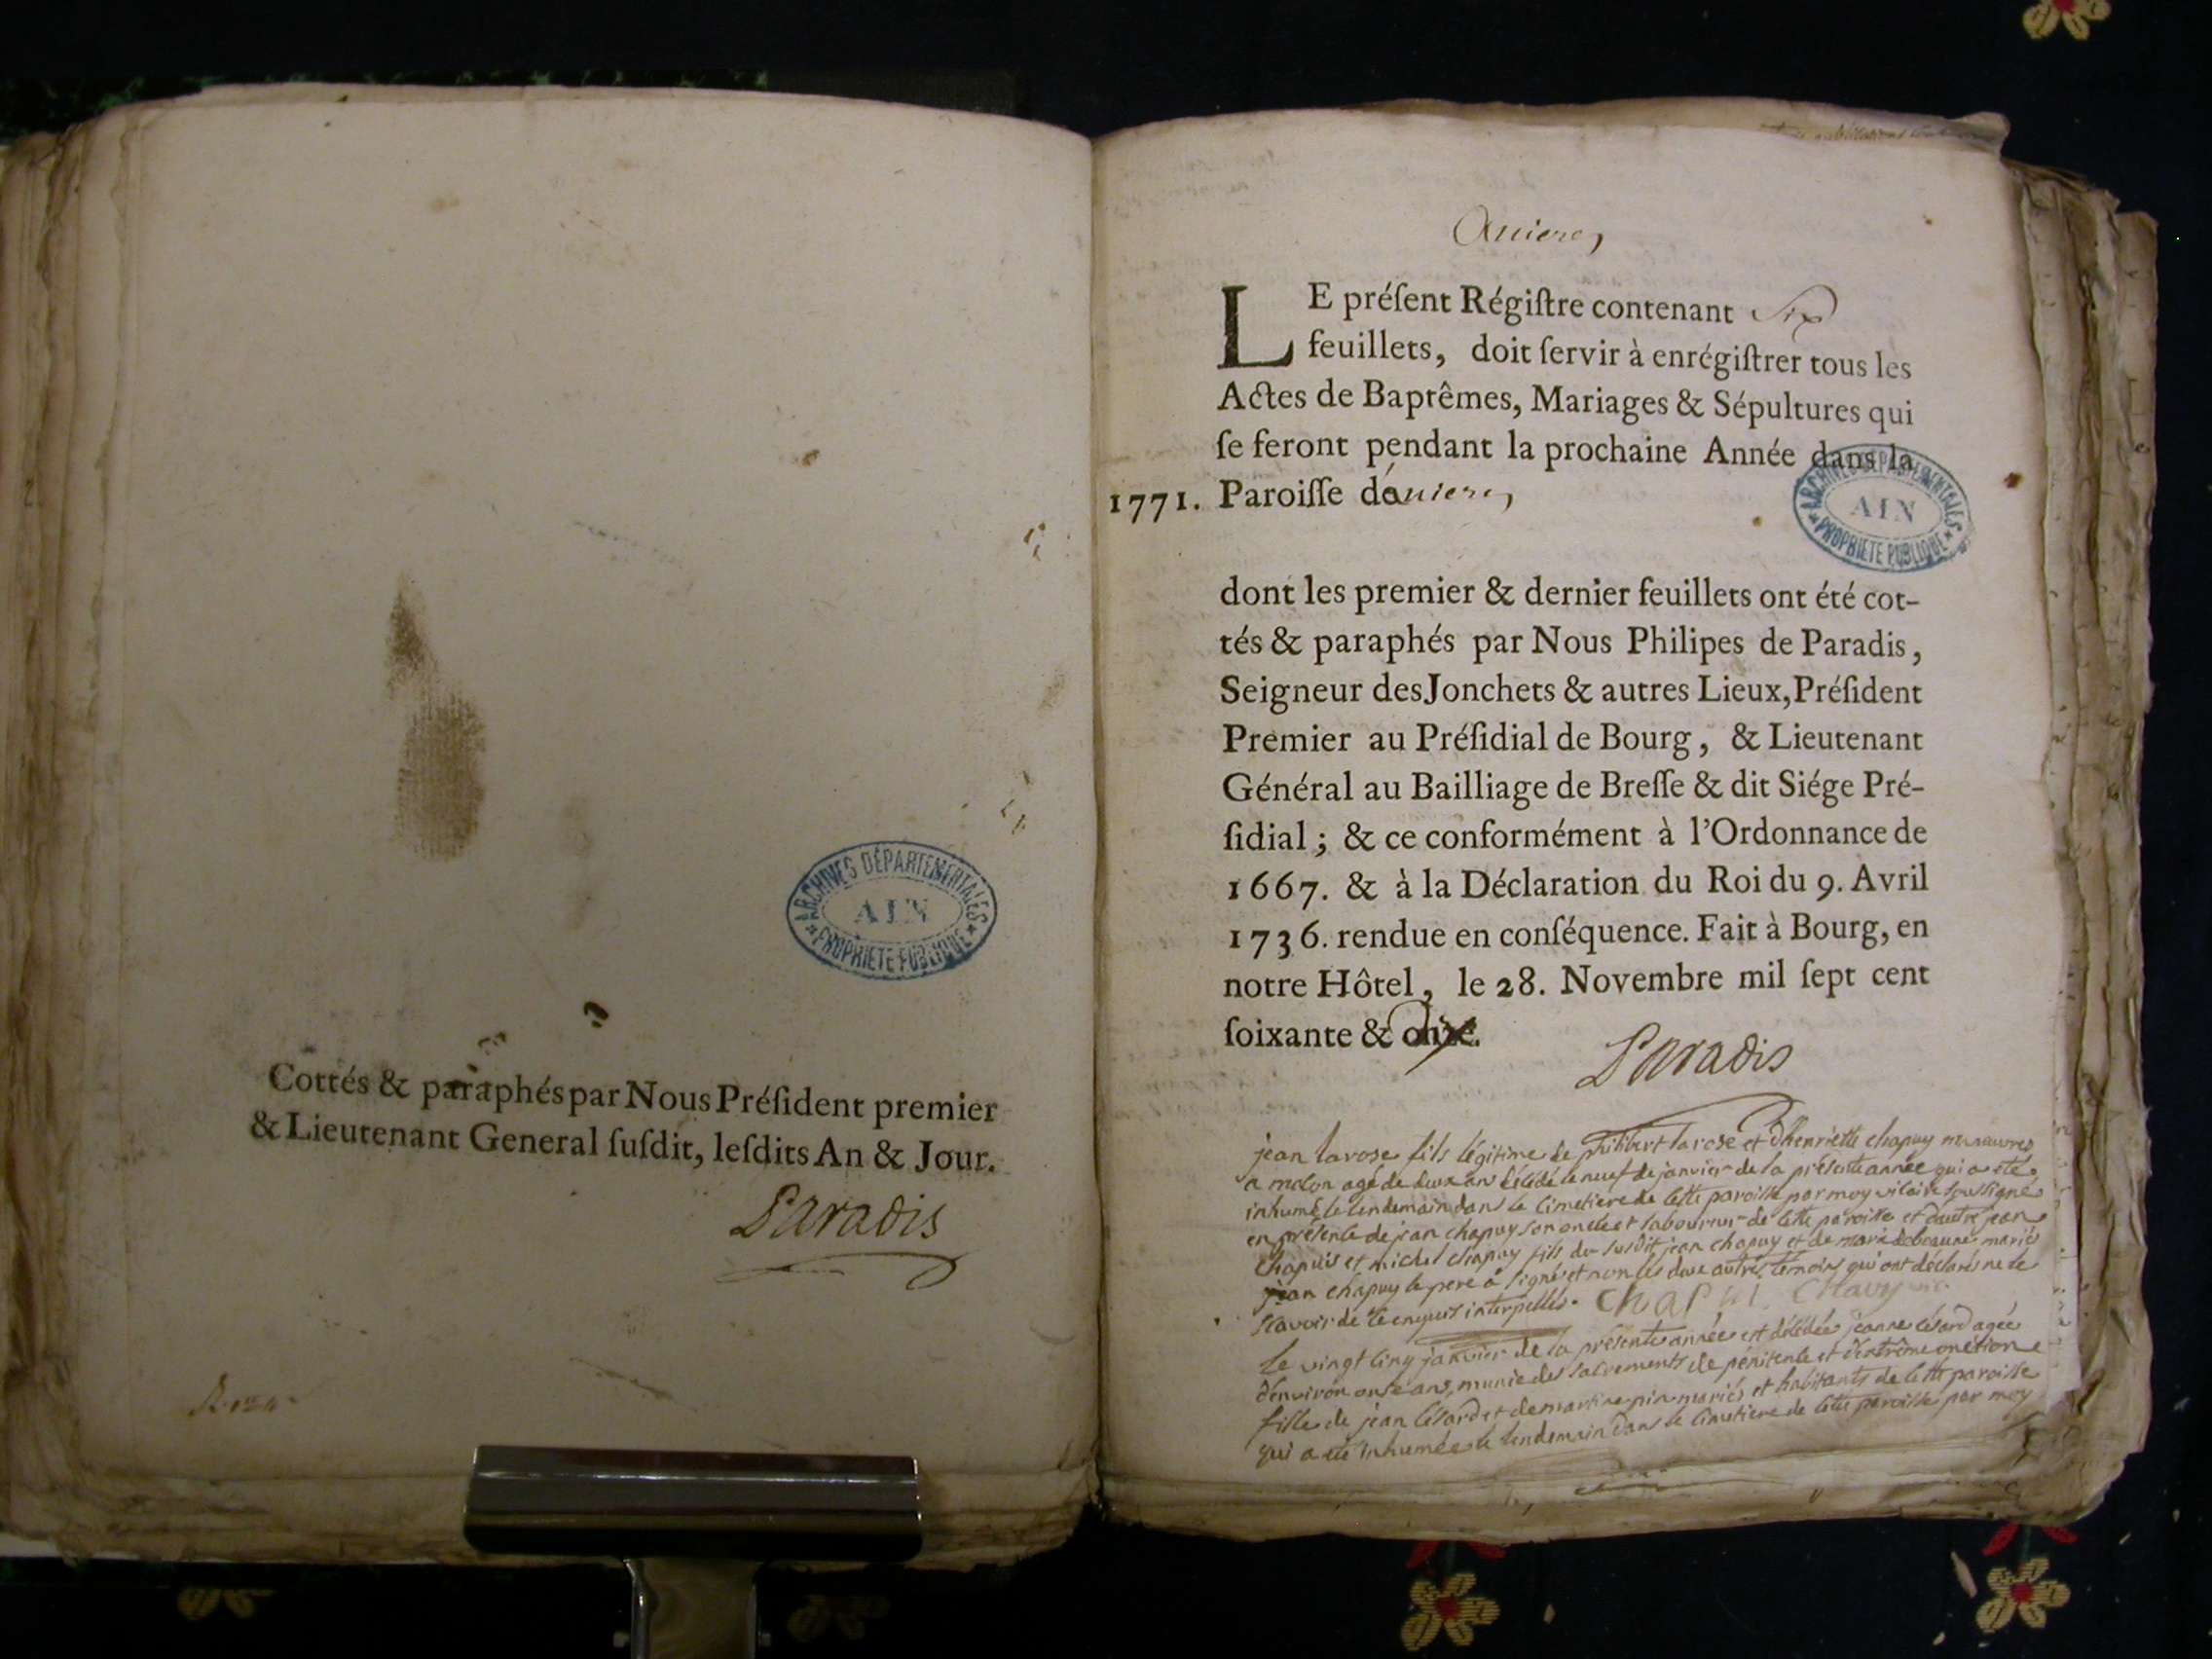 Cottés & paraphés par Nous Préſident premier
& Lieutenant General ſuſdit, leſdits An & Jour.
Paradis
ARCHIVES DÉPARTEMENTALES
AIN
PROPRIETE PUBLIQUE
LE préſent Régiſtre contenant Six
feuillets, doit ſervir à enrégiſtrer tous les
Actes de Baptêmes, Mariages & Sépultures qui
ſe feront pendant la prochaine Année dans la
1771. Paroiſſe
ARCHIVES DÉPARTEMENTALES
AIN
PROPRIETE PUBLIQUE
dont les premier & dernier feuillets ont été cot-
tés & paraphés par Nous Philipes de Paradis,
Seigneur des Jonchets & autres Lieux, Préſident
Premier au Préſidial de Bourg, & Lieutenant
Général au Bailliage de Breſſe & dit Siége Pré-
ſidial; & ce conformément à l'Ordonnance de
1667. & à la Déclaration du Roi du 9. Avril
1736. rendue en conſéquence. Fait à Bourg, en
notre Hôtel, le 28. Novembre mil ſept cent
ſoixante & onze.
Paradis
jean larose fils légitime de philibert larose et d'henriette chapuy manœuvres
agé de deux ans décédé le neuf de janvier de la présente année qui a eté
inhumé le lendemain dans le cimetiere de cette paroisse par moy vicaire soussigné
en présence de jean chapuy son oncle et laboureur de cette paroisse et d'autre jean
chapuis et michel chapuy fils du susdit jean chapuy et de marie mariés
jean chapuy le pere a signé et non les deux autres témoins qui ont déclarés ne le
scavoir de ce enquis interpellés. Chapui
Le vingt cinq janvier de la présente année est décédée jeanne agée
d'environ onze ans, munie des sacrements de pénitence et d'extrême onction
fille de jean et de martine mariés et habitants de cette paroisse
qui a eté inhumée le lendemain dans le cimetiere de cette paroisse par moy